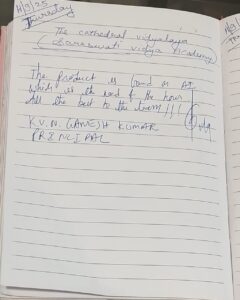 14/3/25
Thursday
The cathedral vidyalaya
Saraswati vidya Academy
The product is Good on AI
which is the need of the hour
All the best to the team!!!
K.V.N. GANESH KUMAR
PRINCIPAL